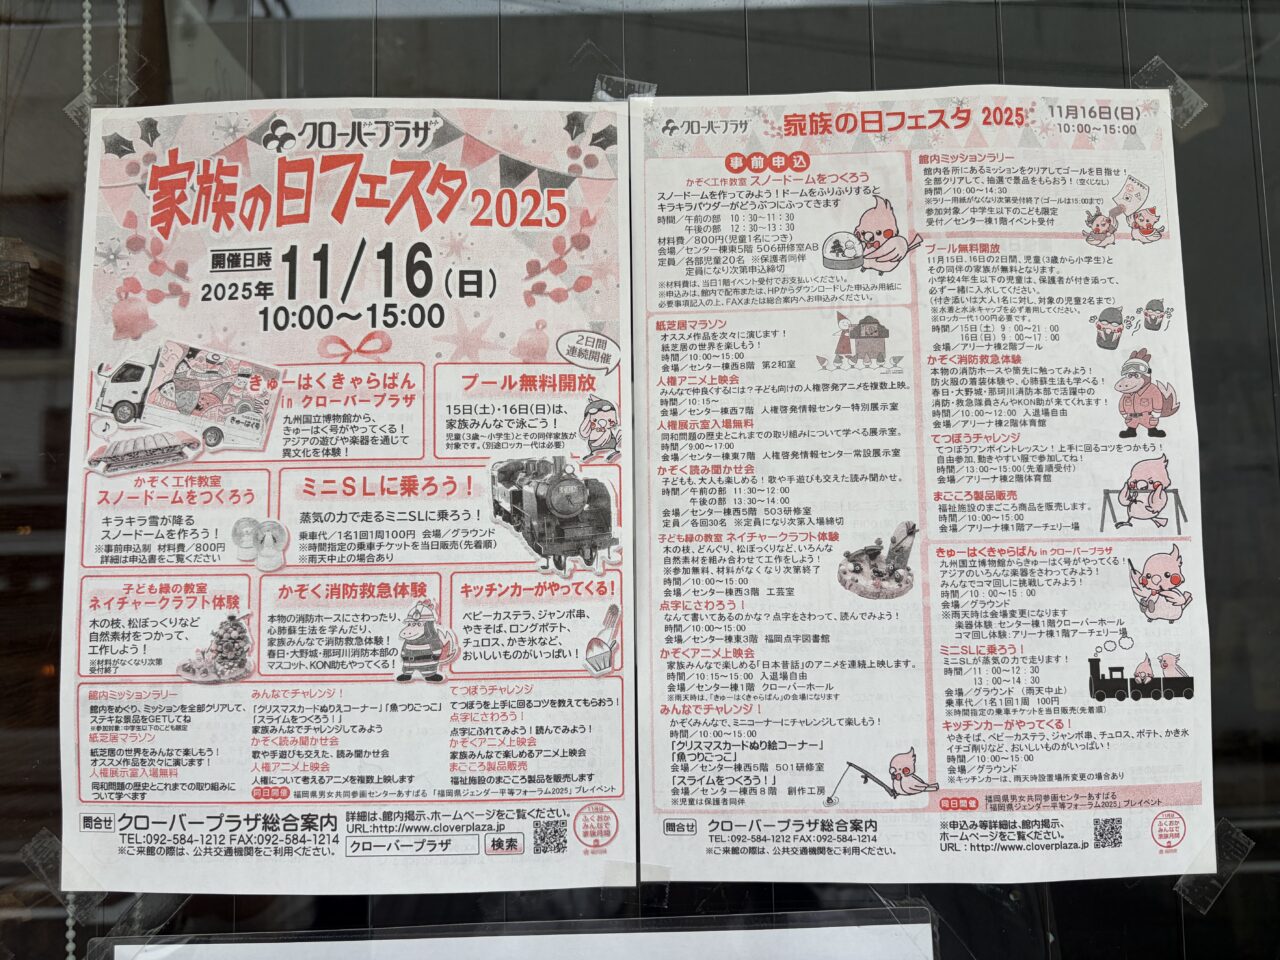 クローバープラザ
家族の日フェスタ2025
開催日時
2025年 11/16(日)
10:00～15:00
2日間
連続開催
きゅーはくきゃらばん
in クローバープラザ
九州国立博物館から、
きゅーはく号がやってくる!
アジアの遊びや楽器を通じて
異文化を体験!
プール無料開放
15日(土)・16日(日)は、
家族みんなで泳ごう!
児童(3歳～小学生)とその同伴家族が
対象です。(別途ロッカー代は必要)
かぞく工作教室
スノードームをつくろう
キラキラ雪が降る
スノードームを作ろう!
※事前申込制 材料費/800円
詳細は申込書をご覧ください
ミニSLに乗ろう!
蒸気の力で走るミニSLに乗ろう!
乗車代/1名1回1周100円 会場/グラウンド
※時間指定の乗車チケットを当日販売(先着順)
※雨天中止の場合あり
子ども緑の教室
ネイチャークラフト体験
木の枝、松ぼっくりなど
自然素材をつかって、
工作しよう!
※材料がなくなり次第
受付終了
かぞく消防救急体験
本物の消防ホースにさわったり、
心肺蘇生法を学んだり、
家族みんなで消防救急体験!
春日・大野城・那珂川消防本部の
マスコット、KON助もやってくる!
キッチンカーがやってくる!
ベビーカステラ、ジャンボ串、
やきそば、ロングポテト、
チュロス、かき氷など、
おいしいものがいっぱい!
館内ミッションラリー
館内をめぐり、ミッションを全部クリアして、
ステキな景品をGETしてね
※参加対象:中学生以下のこども限定
紙芝居マラソン
紙芝居の世界をみんなで楽しもう!
オススメ作品を次々に演じます!
人権展示室入場無料
同和問題の歴史とこれまでの取り組みに
ついて学べます
みんなでチャレンジ!
「クリスマスカードぬりえコーナー」「魚つりごっこ」
「スライムをつくろう!」
家族みんなでチャレンジしてみよう
かぞく読み聞かせ会
歌や手遊びも交えた、読み聞かせ会
人権アニメ上映会
人権について考えるアニメを複数上映します
てつぼうチャレンジ
てつぼうを上手に回るコツを教えてもらおう!
点字にさわろう!
点字にふれてみよう!読んでみよう!
かぞくアニメ上映会
家族みんなで楽しめるアニメ上映会
まごころ製品販売
福祉施設のまごころ製品を販売します
同日開催 福岡県男女共同参画センターあすばる 「福岡県ジェンダー平等フォーラム2025」プレイベント
問合せ クローバープラザ総合案内
TEL:092-584-1212 FAX:092-584-1214
※ご来館の際は、公共交通機関をご利用ください。
詳細は、館内掲示、ホームページをご覧ください。
URL:http://www.cloverplaza.jp
クローバープラザ 検索
ふくおか
みんなで
家族月間
クローバープラザ 家族の日フェスタ 2025 11月16日(日)
10:00～15:00
事前申込
かぞく工作教室 スノードームをつくろう
スノードームを作ってみよう!ドームをふりふりすると
キラキラパウダーがどうぶつにふってきます
時間/午前の部 10:30～11:30
午後の部 12:30～13:30
材料費/800円(児童1名につき)
会場/センター棟東5階 506研修室AB
定員/各部児童20名 ※保護者同伴
定員になり次第申込締切
※材料費は、当日1階イベント受付でお支払いください。
※申込みは、館内で配布または、HPからダウンロードした申込み用紙に
必要事項記入の上、FAXまたは総合案内へお申込みください。
紙芝居マラソン
オススメ作品を次々に演じます!
紙芝居の世界を楽しもう!
時間/10:00～15:00
会場/センター棟西8階 第2和室
人権アニメ上映会
みんなで仲良くするには?子ども向けの人権啓発アニメを複数上映。
時間/10:15～
会場/センター棟西7階 人権啓発情報センター特別展示室
人権展示室入場無料
同和問題の歴史とこれまでの取り組みについて学べる展示室。
時間/9:00～17:00
会場/センター棟東7階 人権啓発情報センター常設展示室
かぞく読み聞かせ会
子どもも、大人も楽しめる!歌や手遊びも交えた読み聞かせ。
時間/午前の部 11:30～12:00
午後の部 13:30～14:00
会場/センター棟西5階 503研修室
定員/各回30名 ※定員になり次第入場締切
子ども緑の教室 ネイチャークラフト体験
木の枝、どんぐり、松ぼっくりなど、いろんな
自然素材を組み合わせて工作をしよう!
※参加無料、材料がなくなり次第終了
時間/10:00～15:00
会場/センター棟西3階 工芸室
点字にさわろう!
なんて書いてあるのかな?点字をさわって、読んでみよう!
時間/10:00～15:00
会場/センター棟東3階 福岡点字図書館
かぞくアニメ上映会
家族みんなで楽しめる「日本昔話」のアニメを連続上映します。
時間/10:15～15:00 入退場自由
会場/センター棟1階 クローバーホール
※雨天時は、「きゅーはくきゃらばん」の会場になります
みんなでチャレンジ!
かぞくみんなで、ミニコーナーにチャレンジして楽しもう!
「クリスマスカードぬり絵コーナー」
「魚つりごっこ」
会場/センター棟西5階 501研修室
「スライムをつくろう!」
会場/センター棟西8階 創作工房
※児童は保護者同伴
館内ミッションラリー
館内各所にあるミッションをクリアしてゴールを目指せ!
全部クリアして、抽選で景品をもらおう!(空くじなし)
時間/10:00～14:30
※ラリー用紙がなくなり次第受付終了(ゴールは15:00まで)
参加対象/中学生以下のこども限定
受付/センター棟1階イベント受付
プール無料開放
11月15日、16日の2日間、児童(3歳から小学生)と
その同伴の家族が無料となります。
小学校4年生以下の児童は、保護者が付き添って、
必ず一緒に入水してください。
(付き添いは大人1名に対し、対象の児童2名まで)
※水着と水泳キャップを必ず着用してください。
※ロッカー代100円必要です。
時間/15日(土) 9:00～21:00
16日(日) 9:00～18:00
会場/アリーナ棟2階プール
かぞく消防救急体験
本物の消防ホースや筒先に触ってみよう!
防火服の着装体験や、心肺蘇生法も学べる!
春日・大野城・那珂川消防本部で活躍中の
消防・救急隊員さんやKON助が来てくれます!
時間/10:00～12:00 入退場自由
会場/アリーナ棟2階体育館
てつぼうチャレンジ
てつぼうワンポイントレッスン!上手に回るコツをつかもう!
自由参加、動きやすい服で参加してね!
時間/13:00～15:00(先着順受付)
会場/アリーナ棟2階体育館
まごころ製品販売
福祉施設のまごころ商品を販売します。
時間/10:00～15:00
会場/アリーナ棟1階アーチェリー場
きゅーはくきゃらばん in クローバープラザ
九州国立博物館からきゅーはく号がやってくる!
アジアのいろんな楽器をさわってみよう!
みんなでコマ回しに挑戦してみよう!
時間/10:00～15:00
会場/グラウンド
※雨天時は会場変更になります
楽器体験:センター棟1階クローバーホール
コマ回し体験:アリーナ棟1階アーチェリー場
ミニSLに乗ろう!
ミニSLが蒸気の力で走ります!
時間/11:00～12:30
13:00～14:30
会場/グラウンド (雨天中止)
乗車代/1名1回1周 100円
※時間指定の乗車チケットを当日販売(先着順)
キッチンカーがやってくる!
やきそば、ベビーカステラ、ジャンボ串、チュロス、ポテト、かき氷
イチゴ削りなど、おいしいものがいっぱい!
時間/10:00～15:00
会場/グラウンド
※キッチンカーは、雨天時設置場所変更の場合あり
同日開催 福岡県男女共同参画センターあすばる
「福岡県ジェンダー平等フォーラム2025」プレイベント
問合せ クローバープラザ総合案内
TEL:092-584-1212 FAX:092-584-1214
※ご来館の際は、公共交通機関をご利用ください。
※申込み等詳細は、館内掲示、
ホームページをご覧ください。
URL:http://www.cloverplaza.jp
ふくおか
みんなで
家族月間